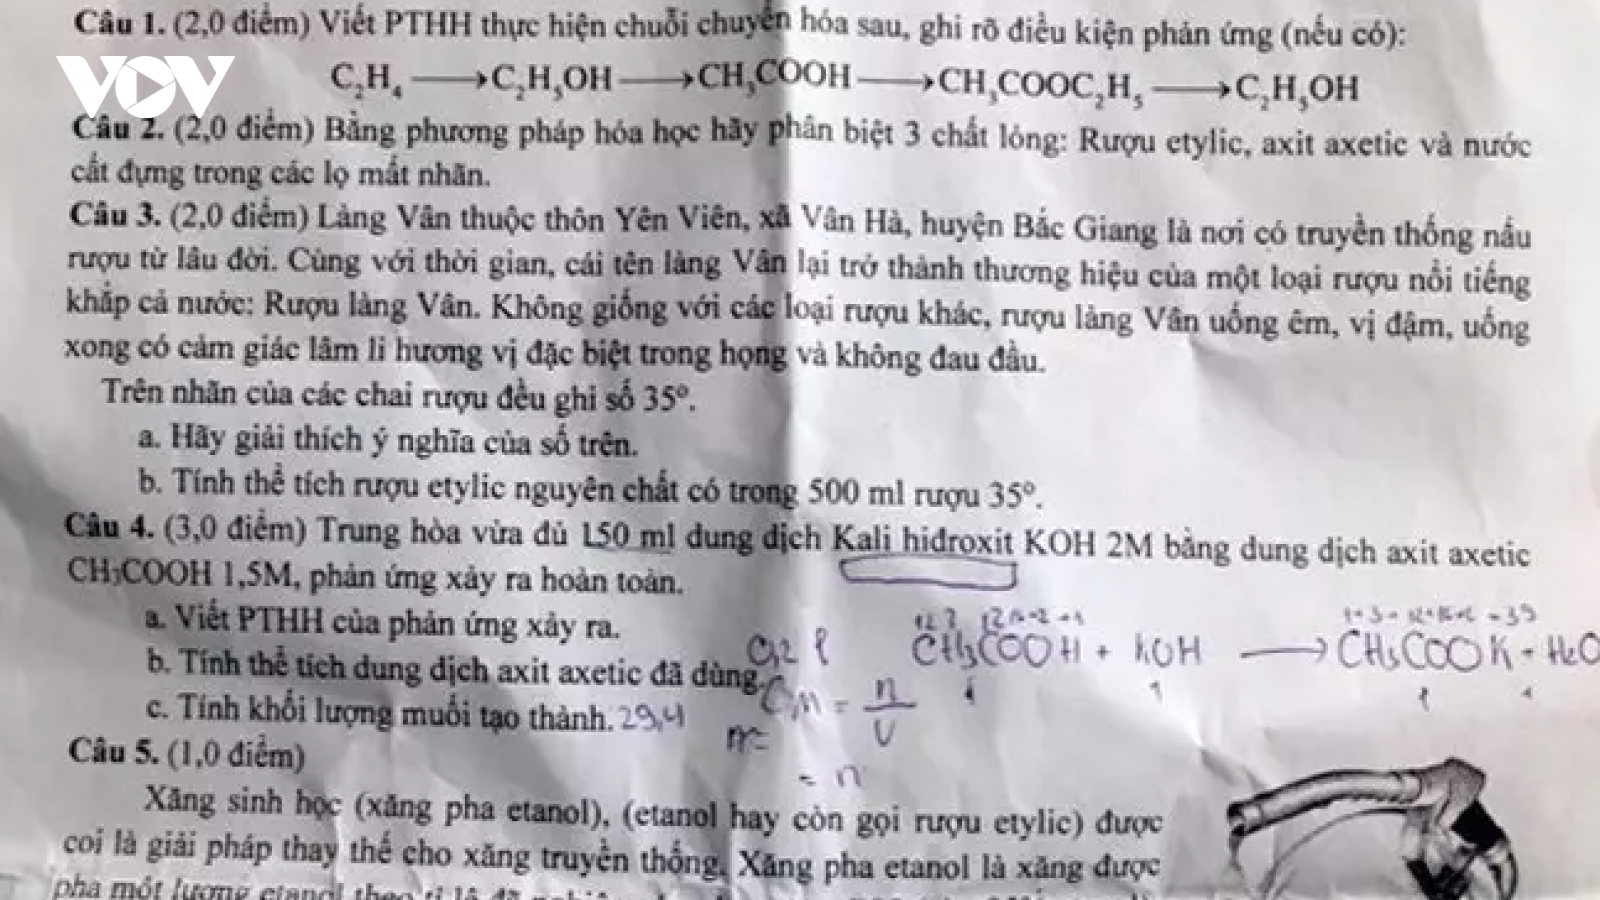 Câu 1. (2,0 điểm) Viết PTHH thực hiện chuỗi chuyển hóa sau, ghi rõ điều kiện phản ứng (nếu có):
VOV
C₂H₄ ⟶ C₂H₅OH ⟶ CH₃COOH ⟶ CH₃COOC₂H₅ ⟶ C₂H₅OH
Câu 2. (2,0 điểm) Bằng phương pháp hóa học hãy phân biệt 3 chất lỏng: Rượu etylic, axit axetic và nước
cất đựng trong các lọ mất nhãn.
Câu 3. (2,0 điểm) Làng Vân thuộc thôn Yên Viên, xã Vân Hà, huyện Bắc Giang là nơi có truyền thống nấu
rượu từ lâu đời. Cùng với thời gian, cái tên làng Vân lại trở thành thương hiệu của một loại rượu nổi tiếng
khắp cả nước: Rượu làng Vân. Không giống với các loại rượu khác, rượu làng Vân uống êm, vị đậm, uống
xong có cảm giác lâm li hương vị đặc biệt trong họng và không đau đầu.
Trên nhãn của các chai rượu đều ghi số 35º.
a. Hãy giải thích ý nghĩa của số trên.
b. Tính thể tích rượu etylic nguyên chất có trong 500 ml rượu 35º.
Câu 4. (3,0 điểm) Trung hòa vừa đủ 150 ml dung dịch Kali hiđroxit KOH 2M bằng dung dịch axit axetic
CH₃COOH 1,5M, phản ứng xảy ra hoàn toàn.
a. Viết PTHH của phản ứng xảy ra.
CH₃COOH + KOH ⟶ CH₃COOK + H₂O
b. Tính thể tích dung dịch axit axetic đã dùng. 0,2 l
CM = n/V
c. Tính khối lượng muối tạo thành. 29,4
m=
= n
Câu 5. (1,0 điểm)
Xăng sinh học (xăng pha etanol), (etanol hay còn gọi rượu etylic) được
coi là giải pháp thay thế cho xăng truyền thống. Xăng pha etanol là xăng được
pha một lượng etanol theo tỉ lệ đã